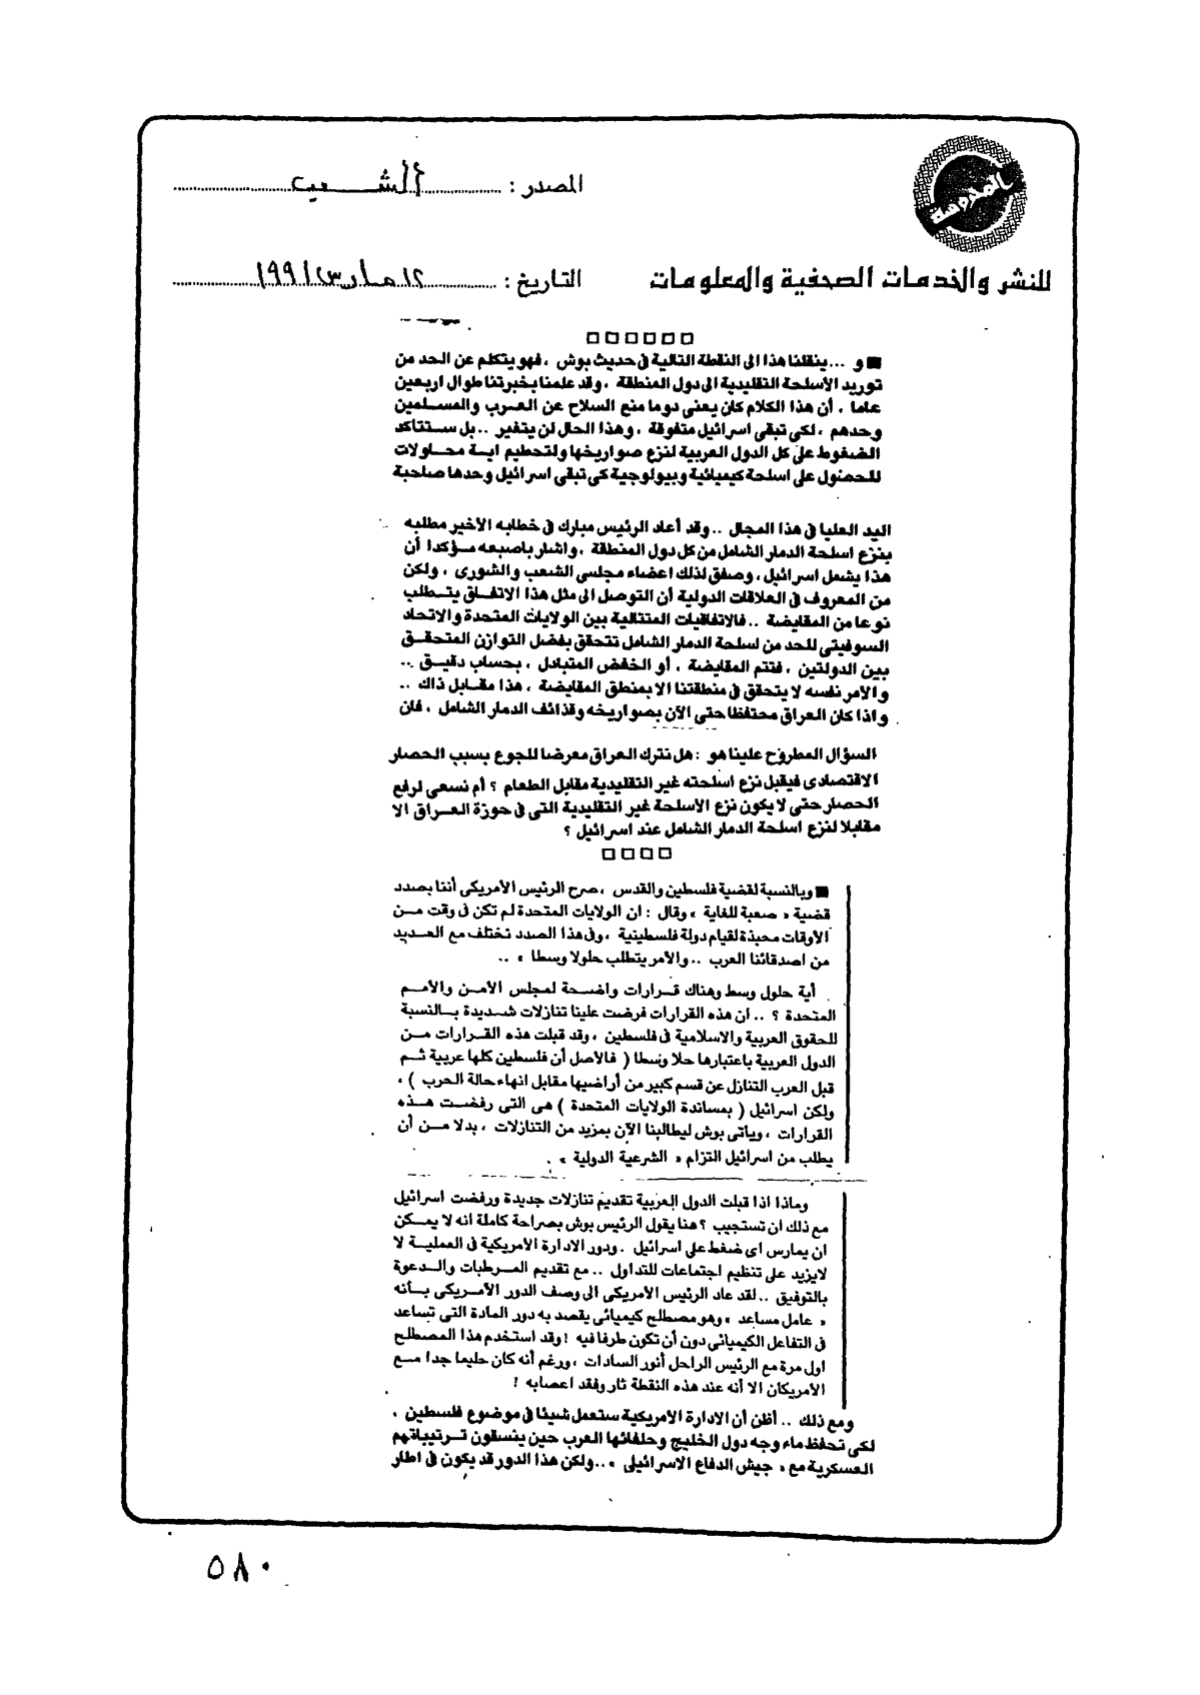 المصدر : الشعب
التاريخ : ١٢ مارس ١٩٩١
للنشر والخدمات الصحفية والمعلومات
■ و ... ينقلنا هذا الى النقطة التالية فى حديث بوش ، فهو يتكلم عن الحد من
توريد الأسلحة التقليدية الى دول المنطقة ، وقد علمنا بخبرتنا طوال اربعين
عاما ، أن هذا الكلام كان يعنى دوما منع السلاح عن العرب والمسلمين
وحدهم ، لكى تبقى اسرائيل متفوقة ، وهذا الحال لن يتغير .. بل ستتأكد
الضغوط على كل الدول العربية لنزع صواريخها ولتحطيم اية محاولات
للحصول على اسلحة كيميائية وبيولوجية كى تبقى اسرائيل وحدها صاحبة
اليد العليا فى هذا المجال .. وقد أعاد الرئيس مبارك فى خطابه الأخير مطلبه
بنزع اسلحة الدمار الشامل من كل دول المنطقة ، واشار باصبعه مؤكدا أن
هذا يشمل اسرائيل ، وصفق لذلك اعضاء مجلسى الشعب والشورى ، ولكن
من المعروف فى العلاقات الدولية أن التوصل الى مثل هذا الاتفاق يتطلب
نوعا من المقايضة .. فالاتفاقيات المتتالية بين الولايات المتحدة والاتحاد
السوفيتى للحد من اسلحة الدمار الشامل تتحقق بفضل التوازن المتحقق
بين الدولتين ، فتتم المقايضة ، أو الخفض المتبادل ، بحساب دقيق ..
والامر نفسه لا يتحقق فى منطقتنا الا بمنطق المقايضة ، هذا مقابل ذاك ..
واذا كان العراق محتفظا حتى الآن بصواريخه وقذائف الدمار الشامل ، فان
السؤال المطروح علينا هو : هل نترك العراق معرضا للجوع بسبب الحصار
الاقتصادى فيقبل نزع اسلحته غير التقليدية مقابل الطعام ؟ أم نسعى لرفع
الحصار حتى لا يكون نزع الأسلحة غير التقليدية التى فى حوزة العراق الا
مقابلا لنزع اسلحة الدمار الشامل عند اسرائيل ؟
■ وبالنسبة لقضية فلسطين والقدس ، صرح الرئيس الأمريكى أننا بصدد
قضية « صعبة للغاية » وقال : ان الولايات المتحدة لم تكن فى وقت من
الأوقات محبذة لقيام دولة فلسطينية ، وفى هذا الصدد نختلف مع العديد
من اصدقائنا العرب .. والأمر يتطلب حلولا وسطا » ..
أية حلول وسط وهناك قرارات واضحة لمجلس الأمن والأمم
المتحدة ؟ .. ان هذه القرارات فرضت علينا تنازلات شديدة بالنسبة
للحقوق العربية والاسلامية فى فلسطين ، وقد قبلت هذه القرارات من
الدول العربية باعتبارها حلا وسطا ( فالأصل أن فلسطين كلها عربية ثم
قبل العرب التنازل عن قسم كبير من أراضيها مقابل انهاء حالة الحرب ) ،
ولكن اسرائيل ( بمساندة الولايات المتحدة ) هى التى رفضت هذه
القرارات ، ويأتى بوش ليطالبنا الآن بمزيد من التنازلات ، بدلا من أن
يطلب من اسرائيل التزام « الشرعية الدولية » .
وماذا اذا قبلت الدول العربية تقديم تنازلات جديدة ورفضت اسرائيل
مع ذلك ان تستجيب ؟ هنا يقول الرئيس بوش بصراحة كاملة انه لا يمكن
ان يمارس اى ضغط على اسرائيل . ودور الادارة الأمريكية فى العملية لا
لايزيد على تنظيم اجتماعات للتداول .. مع تقديم المرطبات والدعوة
بالتوفيق .. لقد عاد الرئيس الأمريكى الى وصف الدور الأمريكى بأنه
« عامل مساعد » وهو مصطلح كيميائى يقصد به دور المادة التى تساعد
فى التفاعل الكيميائى دون أن تكون طرفا فيه ! وقد استخدم هذا المصطلح
اول مرة مع الرئيس الراحل أنور السادات ، ورغم أنه كان حليما جدا مع
الأمريكان الا أنه عند هذه النقطة ثار وفقد اعصابه !
ومع ذلك .. أظن أن الادارة الأمريكية ستعمل شيئا فى موضوع فلسطين ،
لكى تحفظ ماء وجه دول الخليج وحلفائها العرب حين ينسقون ترتيباتهم
العسكرية مع « جيش الدفاع الاسرائيلى » .. ولكن هذا الدور قد يكون فى اطار
٥٨٠